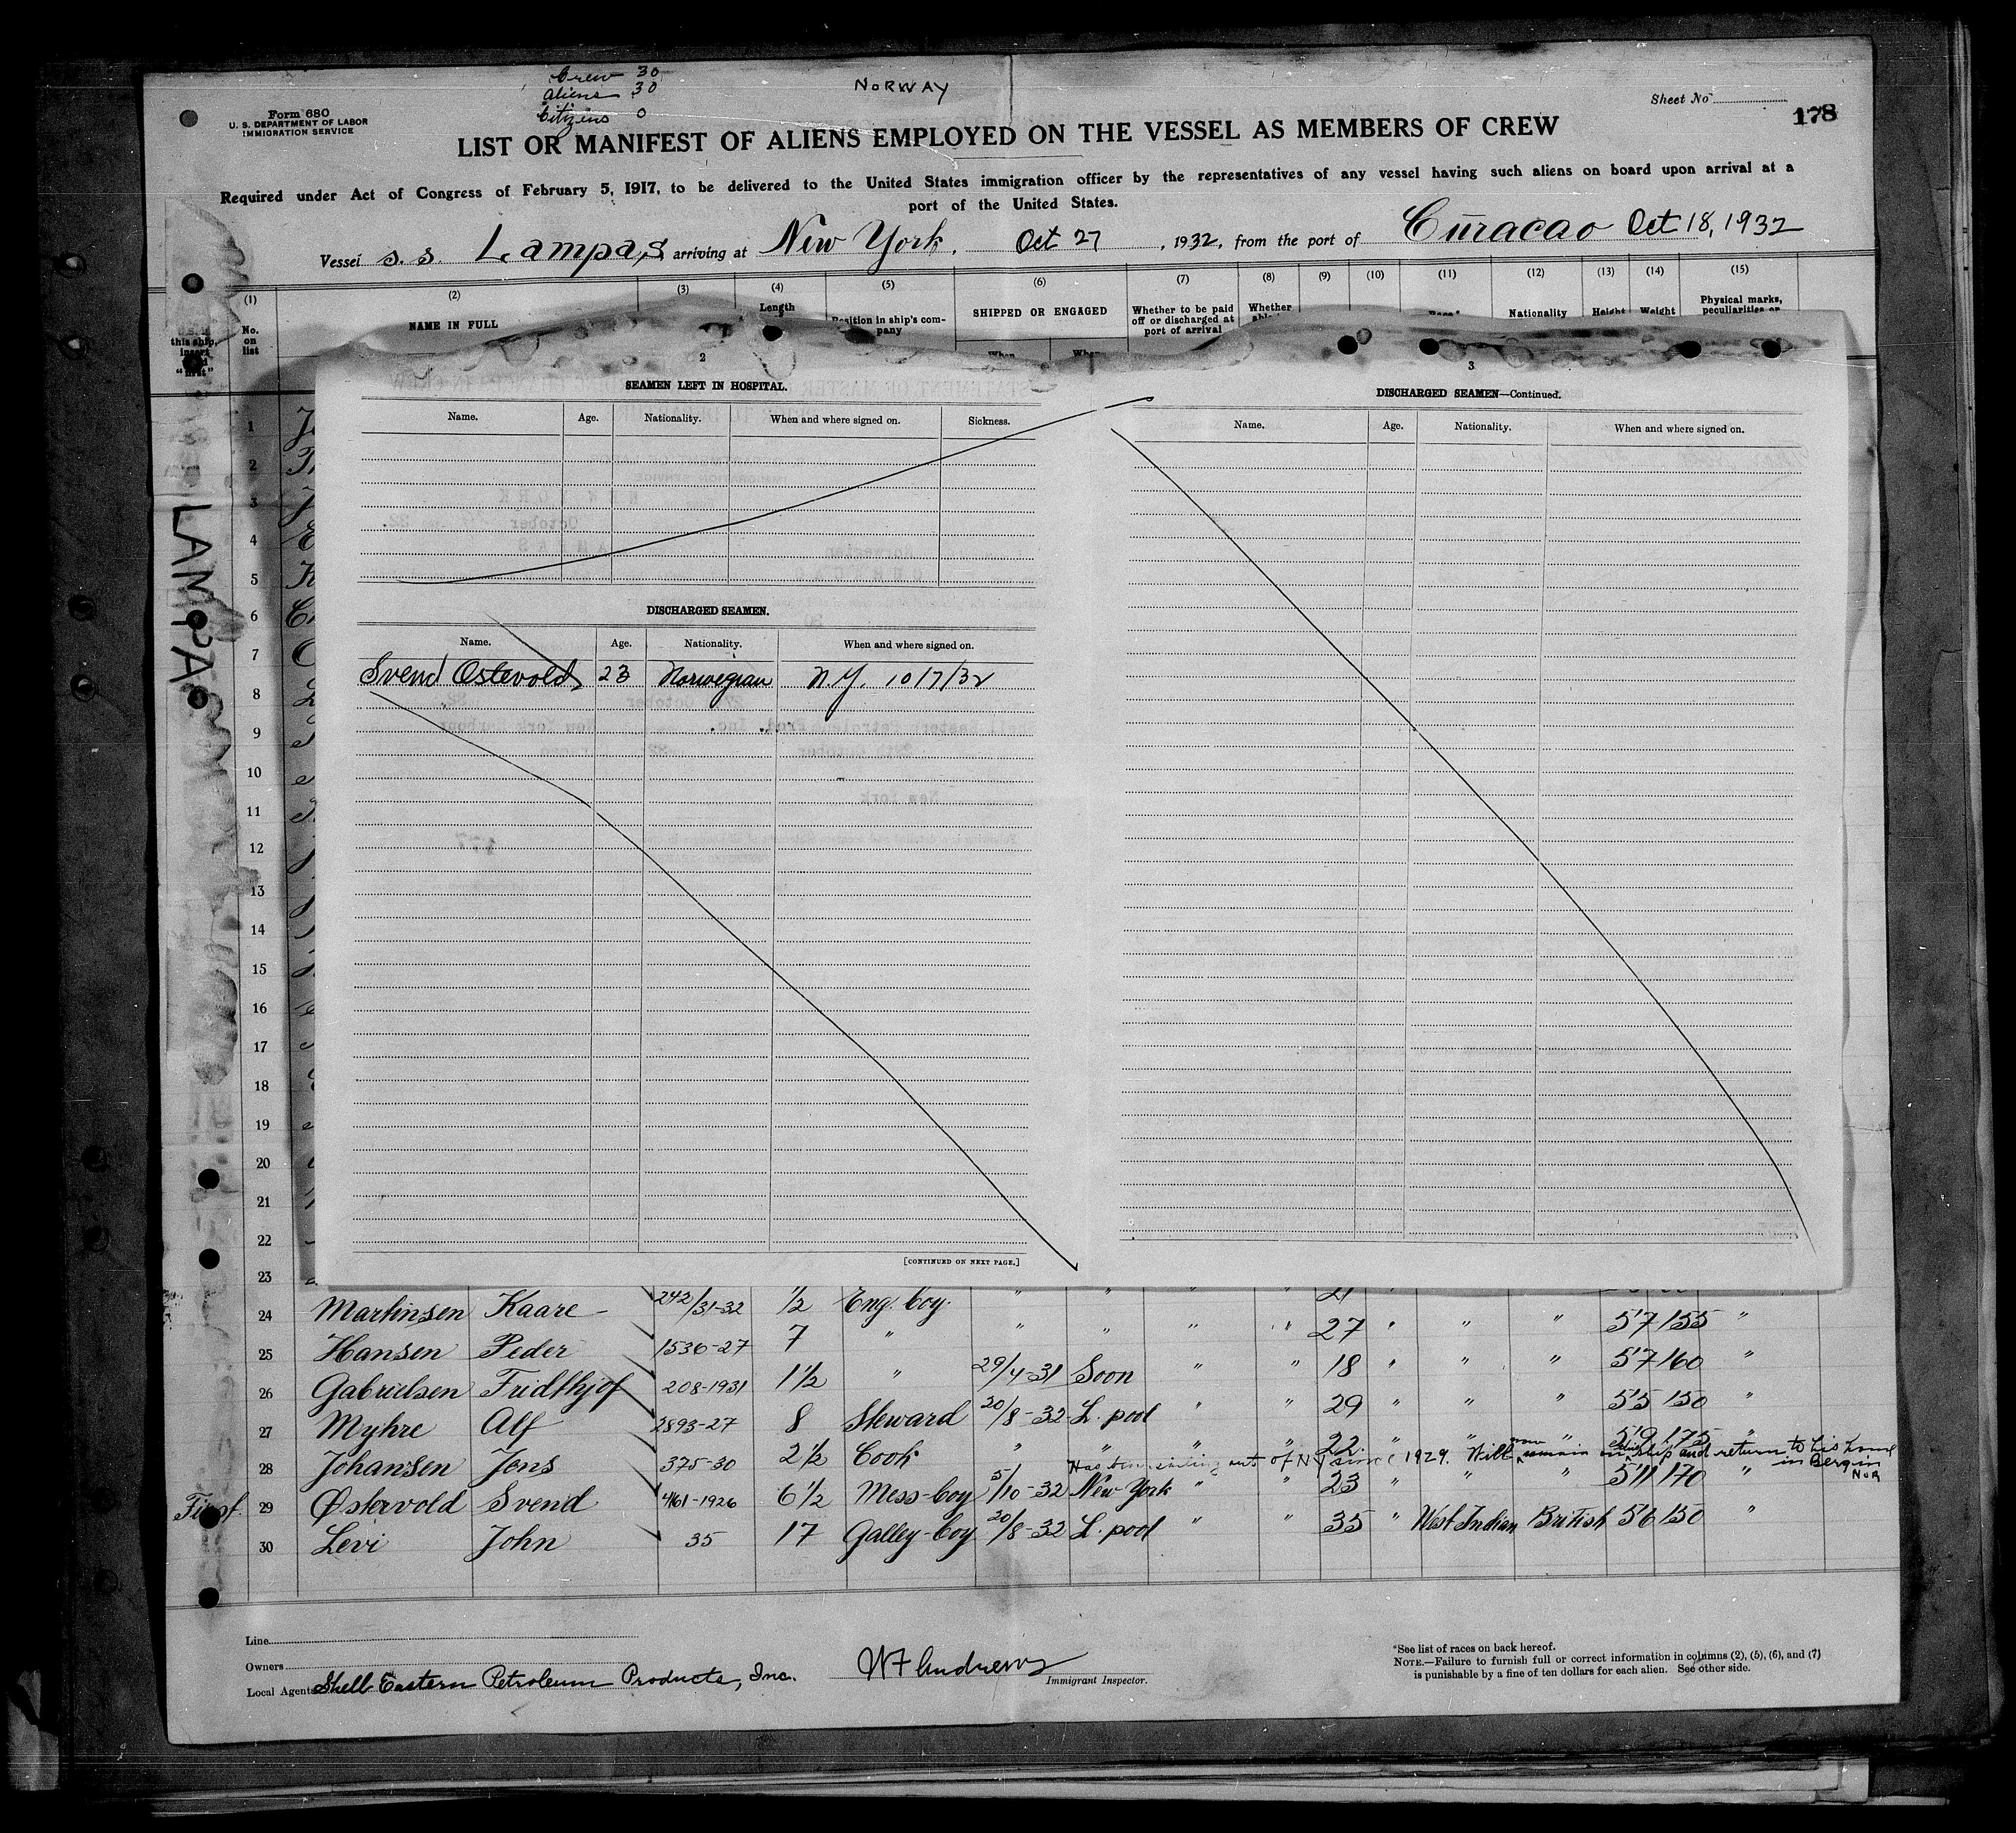 Crew 30
Aliens 30
Citizens 0
NORWAY
Sheet No
178
Form 680
U. S. DEPARTMENT OF LABOR
IMMIGRATION SERVICE
LIST OR MANIFEST OF ALIENS EMPLOYED ON THE VESSEL AS MEMBERS OF CREW
Required under Act of Congress of February 5, 1917, to be delivered to the United States immigration officer by the representatives of any vessel having such aliens on board upon arrival at a
port of the United States.
Vessel s.s. Lampas, arriving at New York, Oct 27, 1932, from the port of Curacao Oct 18, 1932
(1) (2) (3) (4) (5) (6) (7) (8) (9) (10) (11) (12) (13) (14) (15)
No. on list
NAME IN FULL
Length
Position in ship's company
SHIPPED OR ENGAGED
Whether to be paid off or discharged at port of arrival
Whether
Nationality
Height
Weight
Physical marks, peculiarities or
this ship, insert
"first"
LAMPA
2
SEAMEN LEFT IN HOSPITAL.
Name. Age. Nationality. When and where signed on. Sickness.
DISCHARGED SEAMEN.
Name. Age. Nationality. When and where signed on.
Svend Ostevold 23 Norwegian N.Y. 10/7/32
[CONTINUED ON NEXT PAGE.]
3
DISCHARGED SEAMEN—Continued.
Name. Age. Nationality. When and where signed on.
1
2
3
4
5
6
7
8
9
10
11
12
13
14
15
16
17
18
19
20
21
22
23
24 Martinsen Kaare 242/31-32 1/2 Eng. boy. " " " " 21
25 Hansen Peder 1536-27 7 " " " " " 27 " " " 5'7 155 "
26 Gabrielsen Fridthjof 208-1931 1 1/2 " 29/4-31 Soon " " 18 " " " 5'7 160 "
27 Myhre Alf 2893-27 8 Steward 20/8-32 L. pool " " 29 " " " 5'5 150 "
28 Johansen Jens 375-30 2 1/2 Cook " " " " 22 " " " 5'9 175 "
Has been sailing out of NY since 1929. Will now remain on this ship and return to his home in Bergin Nor
29 Østervold Svend 4161-1926 6 1/2 Mess-boy 5/10-32 New York " " 23 " " " 5'11 170 "
30 Levi John 35 17 Galley-boy 20/8-32 L. pool " " 35 " West Indian British 5'6 150 "
Line
Owners
Local Agents Shell Eastern Petroleum Products, Inc.
Immigrant Inspector.
*See list of races on back hereof.
NOTE.—Failure to furnish full or correct information in columns (2), (5), (6), and (7)
is punishable by a fine of ten dollars for each alien. See other side.